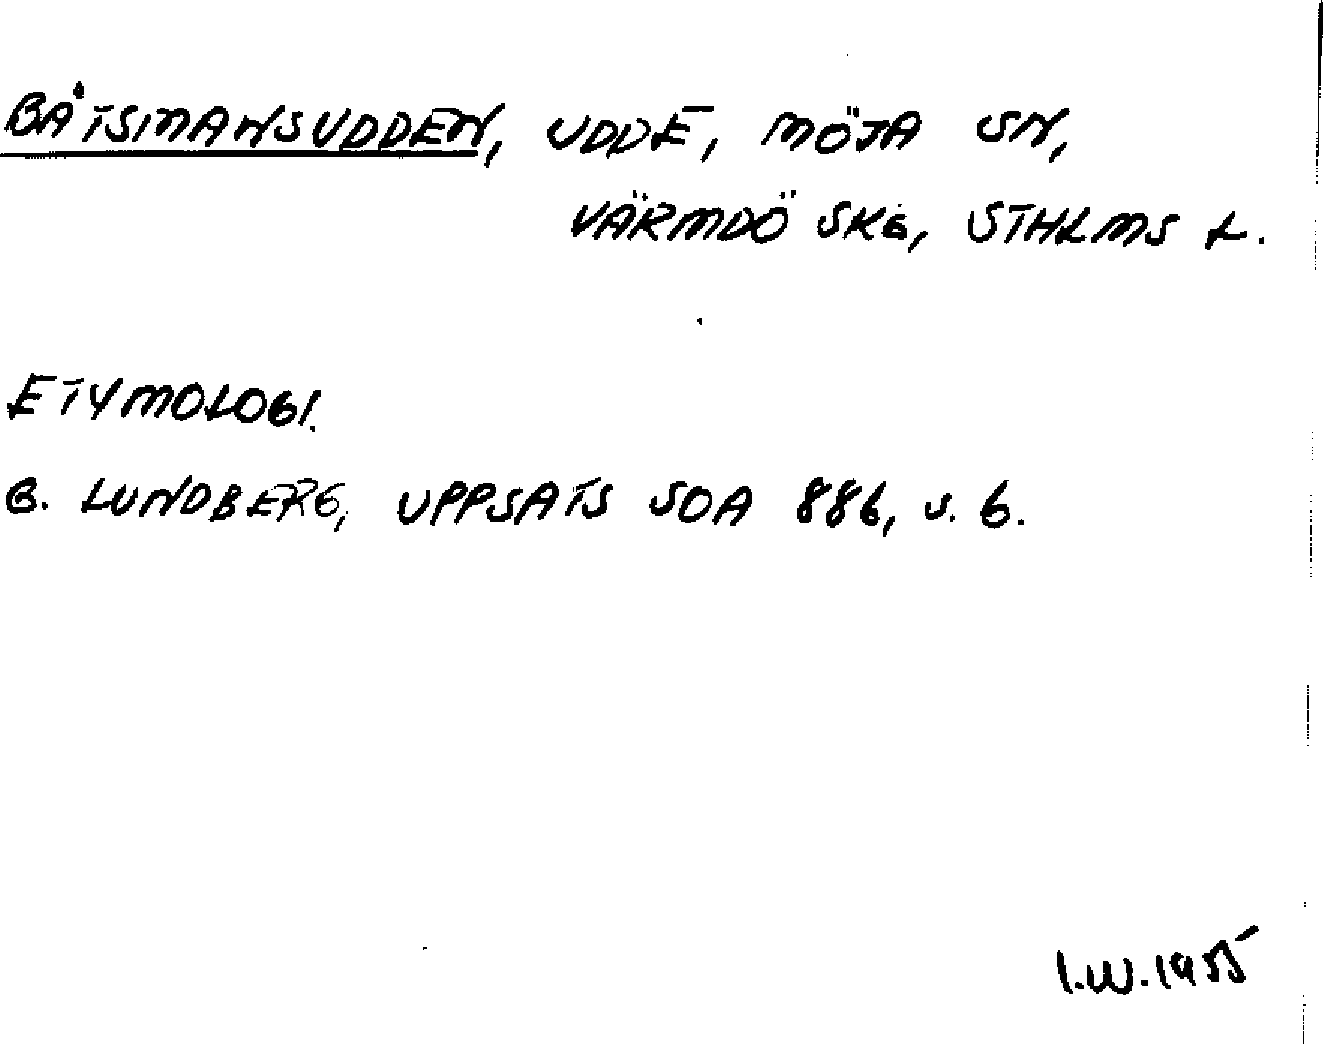 BÅTSMANSUDDEN, UDDE, MÖJA SN,
VÄRMDÖ SKG, STHLMS L.
ETYMOLOGI.
B. LUNDBERG, UPPSATS SOA 886, S. 6.
I.W. 1955